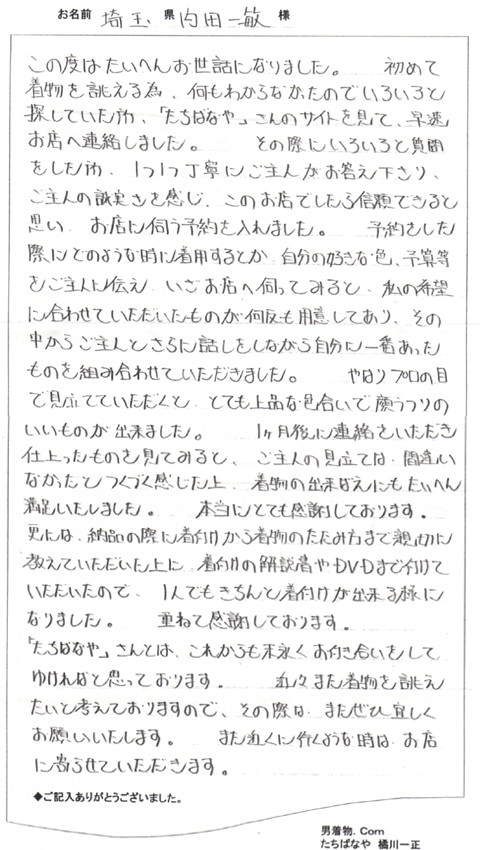 お名前 埼玉 県 内田一敏 様
この度はたいへんお世話になりました。 初めて
着物を誂える為、何もわからなかったのでいろいろと
探していた所、「たちばなや」さんのサイトを見て、早速
お店へ連絡しました。 その際にいろいろと質問
をした所、1つ1つ丁寧にご主人がお答え下さり、
ご主人の誠実さを感じ、このお店でしたら信頼できると
思い お店に伺う予約を入れました。 予約をした
際にどのような時に着用するとか、自分の好きな色、予算等
をご主人に伝え いざお店へ伺ってみると、私の希望
に合わせていただいたものが何反も用意してあり、その
中からご主人とさらに話しをしながら自分に一番あった
ものを組み合わせていただきました。 やはりプロの目
で見立てていただくと、とても上品な色合いで願うつりの
いいものが出来ました。 1ヶ月後に連絡をいただき
仕上ったものを見てみると、ご主人の見立ては間違い
なかったとつくづく感じた上、着物の出来ばえにもたいへん
満足いたしました。 本当にとても感謝しております。
更には、納品の際に着付けから着物のたたみ方まで親切に
教えていただいた上に 着付けの解説書やDVDまで付けて
いただいたので、1人でもきちんと着付けが出来る様に
なりました。 重ねて感謝しております。
「たちばなや」さんとは、これからも末永くお付き合いをして
ゆければと思っております。 近々また着物を誂え
たいと考えておりますので、その際は またぜひ宜しく
お願いいたします。 また近くに行くような時は お店
に寄らせていただきます。
◆ご記入ありがとうございました。
男着物.Com
たちばなや 橘川一正